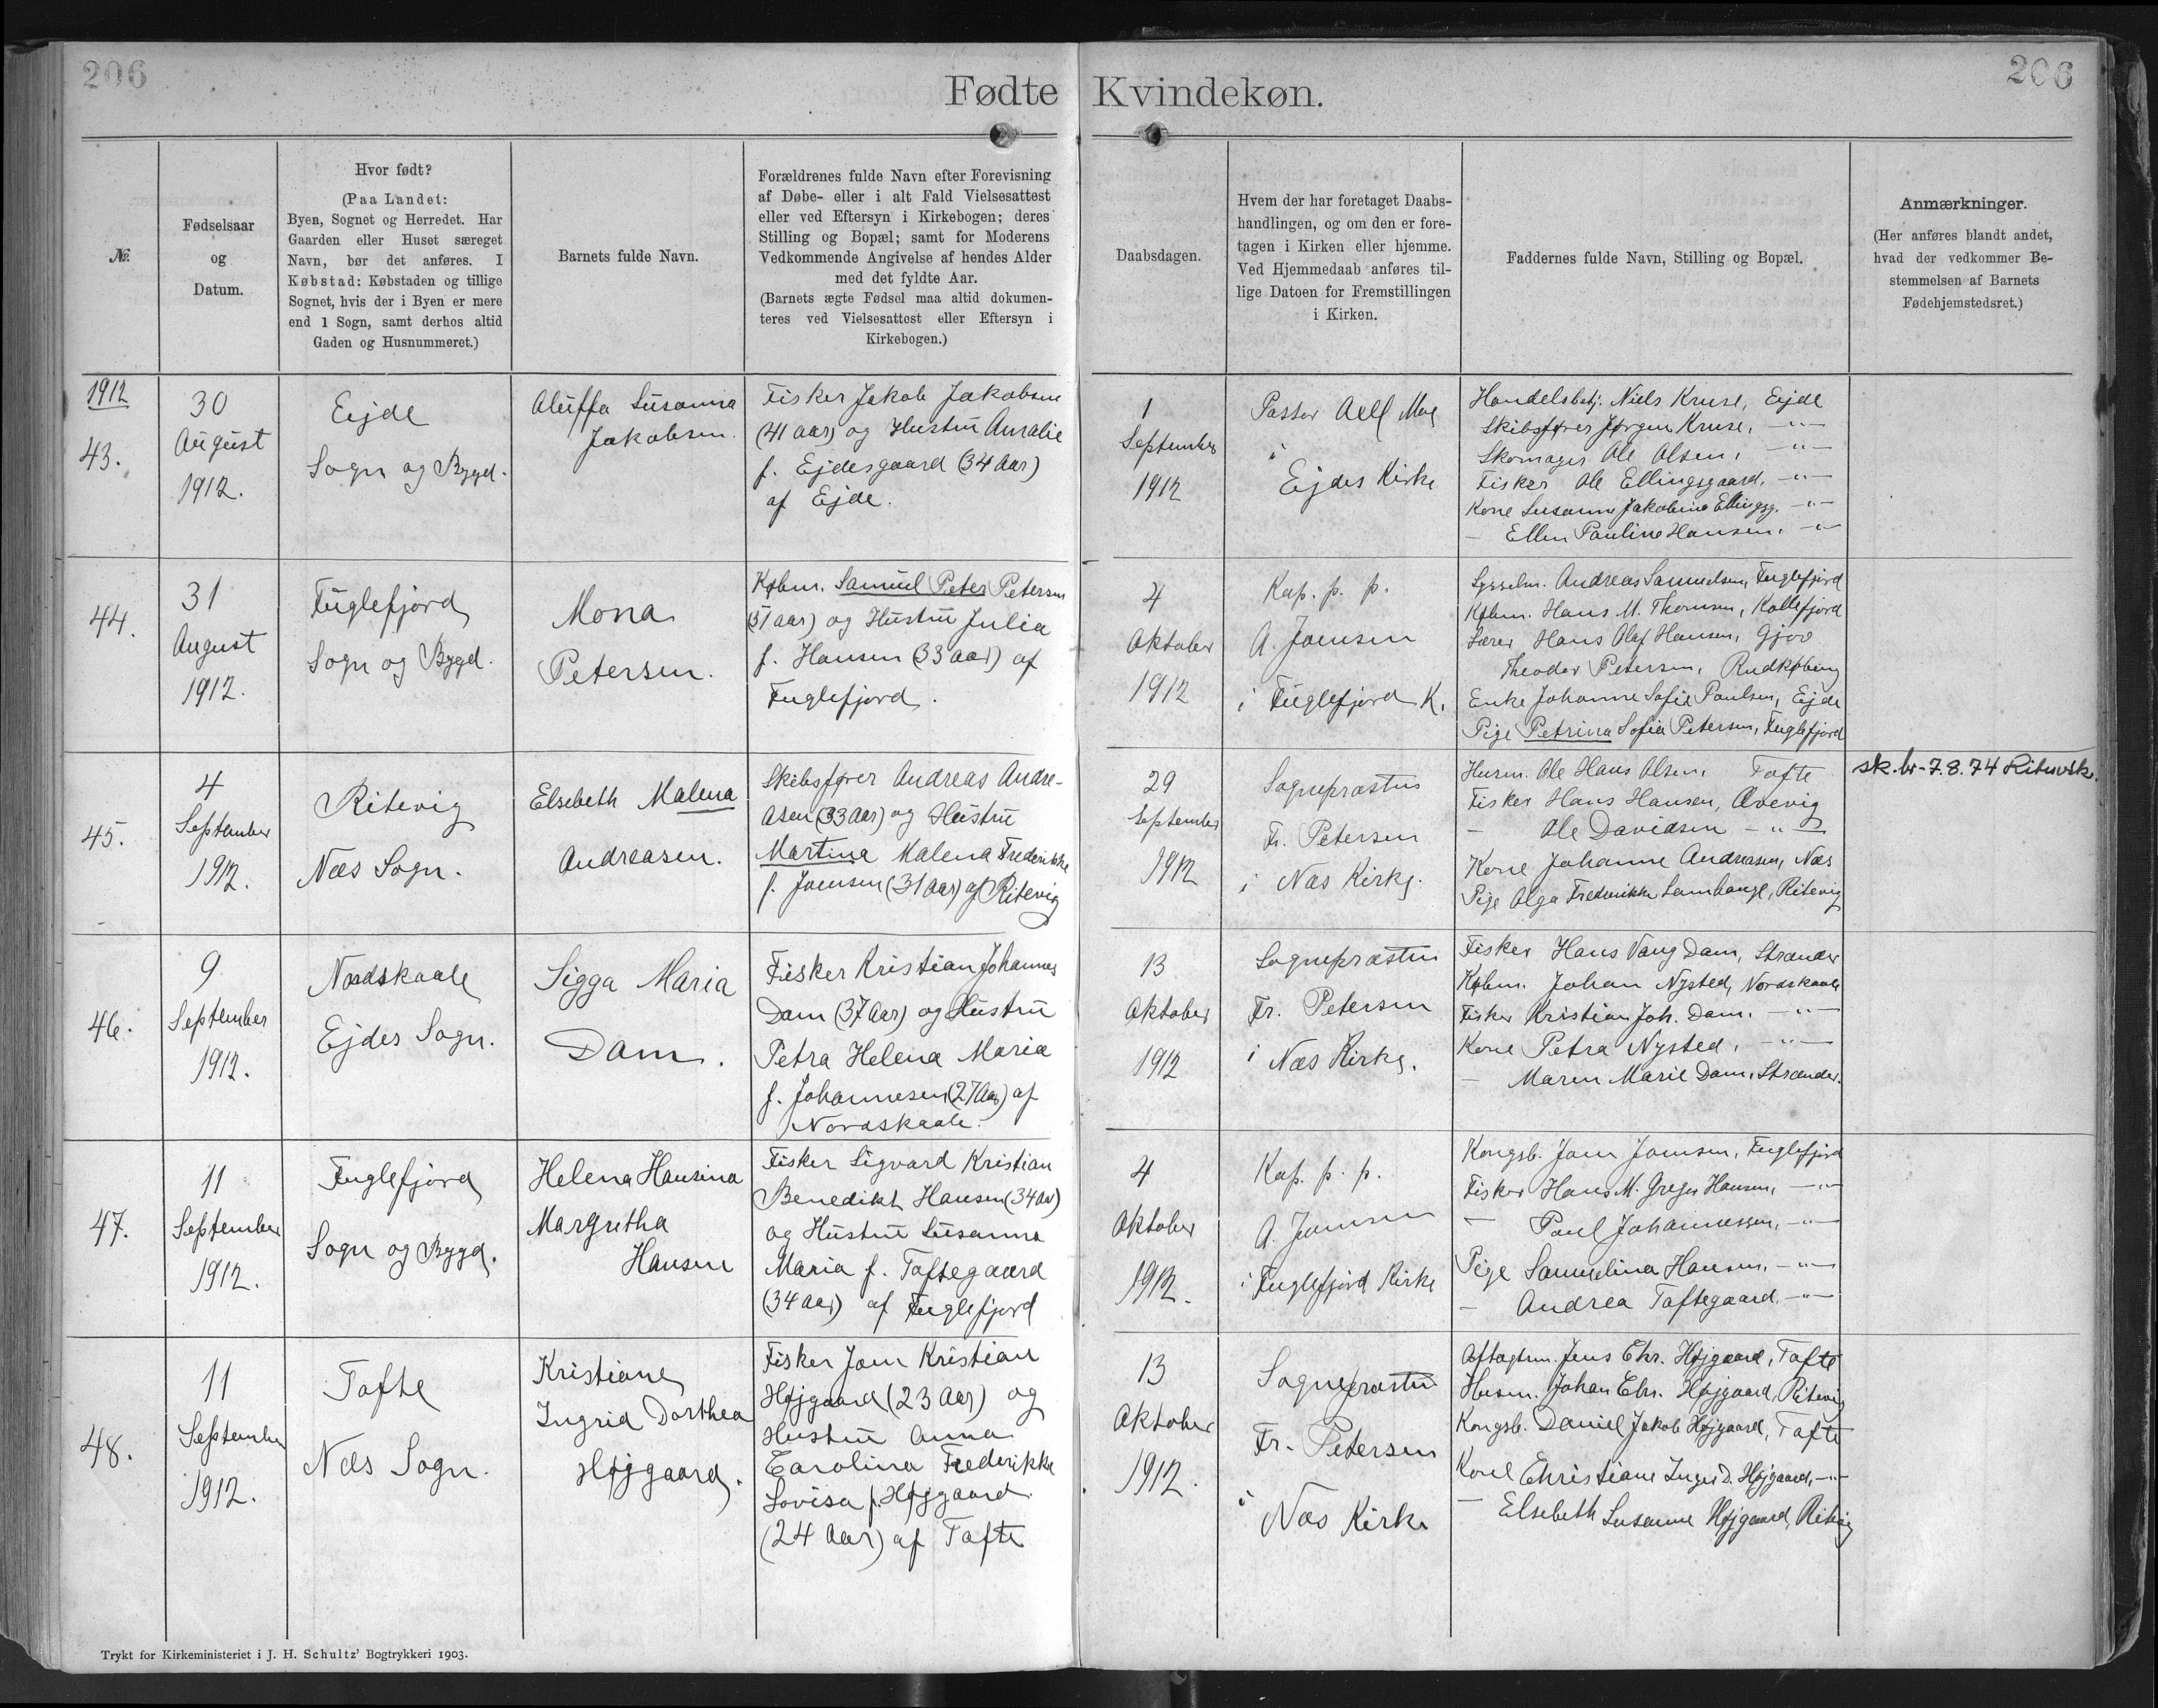 206
Fødte
Kvindekøn.
206
No.
Fødselsaar
og
Datum.
Hvor født?
(Paa Landet:
Byen, Sognet og Herredet. Har
Gaarden eller Huset særeget
Navn, bør det anføres. I
Købstad: Købstaden og tillige
Sognet, hvis der i Byen er mere
end 1 Sogn, samt derhos altid
Gaden og Husnummeret.)
Barnets fulde Navn.
Forældrenes fulde Navn efter Forevisning
af Døbe- eller i alt Fald Vielsesattest
eller ved Eftersyn i Kirkebogen; deres
Stilling og Bopæl; samt for Moderens
Vedkommende Angivelse af hendes Alder
med det fyldte Aar.
(Barnets ægte Fødsel maa altid dokumen-
teres ved Vielsesattest eller Eftersyn i
Kirkebogen.)
Daabsdagen.
Hvem der har foretaget Daabs-
handlingen, og om den er fore-
tagen i Kirken eller hjemme.
Ved Hjemmedaab anføres til-
lige Datoen for Fremstillingen
i Kirken.
Faddernes fulde Navn, Stilling og Bopæl.
Anmærkninger.
(Her anføres blandt andet,
hvad der vedkommer Be-
stemmelsen af Barnets
Fødehjemstedsret.)
1912
43.
30
August
1912.
Ejde
Sogn og Bygd.
Susanna
Jakobsen.
Fisker Jakob Jakobsen
(41 aar) og Hustru Amalie
f. Ejdesgaard (34 Aar)
af Ejde.
1
September
1912
Pastor
i
Ejdes Kirke
Handelsbetj. Niels Kruse, Ejde
Skibsfører Jørgen Kruse, -"-
Skomager Ole Olsen, -"-
Fisker Ole Ellingsgaard, -"-
Kone Susanne Jakobine Ellingsg. -"-
- Ellen Pauline Hansen, -"-
44.
31
August
1912.
Fuglefjord
Sogn og Bygd.
Mona
Petersen.
Købm. Samuel Peter Petersen
(51 aar) og Hustru Julia
f. Hansen (33 Aar) af
Fuglefjord.
4
Oktober
1912
Kap. p. p.
A. Joensen
i Fuglefjord K.
Sysselm. Andreas Samuelsen, Fuglefjord
Købm. Hans M. Thomsen, Kollefjord
Lærer Hans Olaf Hansen, Gjov
Theodor Petersen, Rudkøbing
Enke Johanne Sofie Poulsen, Ejde
Pige Petrina Sofia Petersen, Fuglefjord
45.
4
September
1912.
Ritevig
Næs Sogn.
Elsebeth Malena
Andreasen.
Skibsfører Andreas Andre-
asen (33 Aar) og Hustru
Martina Malena Frederikke
f. Joensen (31 Aar) af Ritevig
29
September
1912
Sognepræsten
Fr. Petersen
i Næs Kirke.
Husm. Ole Hans Olsen, Tofte
Fisker Hans Hansen, Ævevig
- Ole Davidsen -"-
Kone Johanne Andreasen, Næs
Pige Olga Frederikke Lambauge, Ritevig
sk. br - 7.8.74 Rituvsk.
46.
9
September
1912.
Nordskaale
Ejdes Sogn.
Sigga Maria
Dam.
Fisker Kristian Johannes
Dam (37 Aar) og Hustru
Petra Helena Maria
f. Johannesen (27 Aar) af
Nordskaale.
13
Oktober
1912
Sognepræsten
Fr. Petersen
i Næs Kirke.
Fisker Hans Vang Dam, Strænder
Købm. Johan Nysted, Nordskaale
Fisker Kristian Joh. Dam. -"-
Kone Petra Nysted, -"-
- Maren Marie Dam, Strænder.
47.
11
September
1912.
Fuglefjord
Sogn og Bygd.
Helena Hansina
Margretha
Hansen
Fisker Sigvard Kristian
Benedikt Hansen (34 Aar)
og Hustru Susanna
Maria f. Toftegaard
(34 Aar) af Fuglefjord
4
Oktober
1912.
Kap. p. p.
A. Joensen
i Fuglefjord Kirke
Kongsb. Joen Joensen, Fuglefjord
Fisker Hans M. Greger Hansen, -"-
- Poul Johannessen, -"-
Pige Samuelina Hansen, -"-
- Andrea Toftegaard, -"-
48.
11
September
1912.
Tofte
Næs Sogn.
Kristiane
Ingrid Dorthea
Højgaard.
Fisker Joen Kristian
Højgaard (23 Aar) og
Hustru Anna
Carolina Frederikke
Lovisa f. Højgaard
(24 Aar) af Tofte
13
Oktober
1912.
Sognepræsten
Fr. Petersen
i
Næs Kirke
Aftægtsm. Jens Chr. Højgaard, Tofte
Husm. Johan Chr. Højgaard, Ritevig
Kongsb. Daniel Jakob Højgaard, Tofte
Kone Christiane Inger D. Højgaard, -"-
- Elsebeth Susanne Højgaard, Ritevig
Trykt for Kirkeministeriet i J. H. Schultz' Bogtrykkeri 1903.